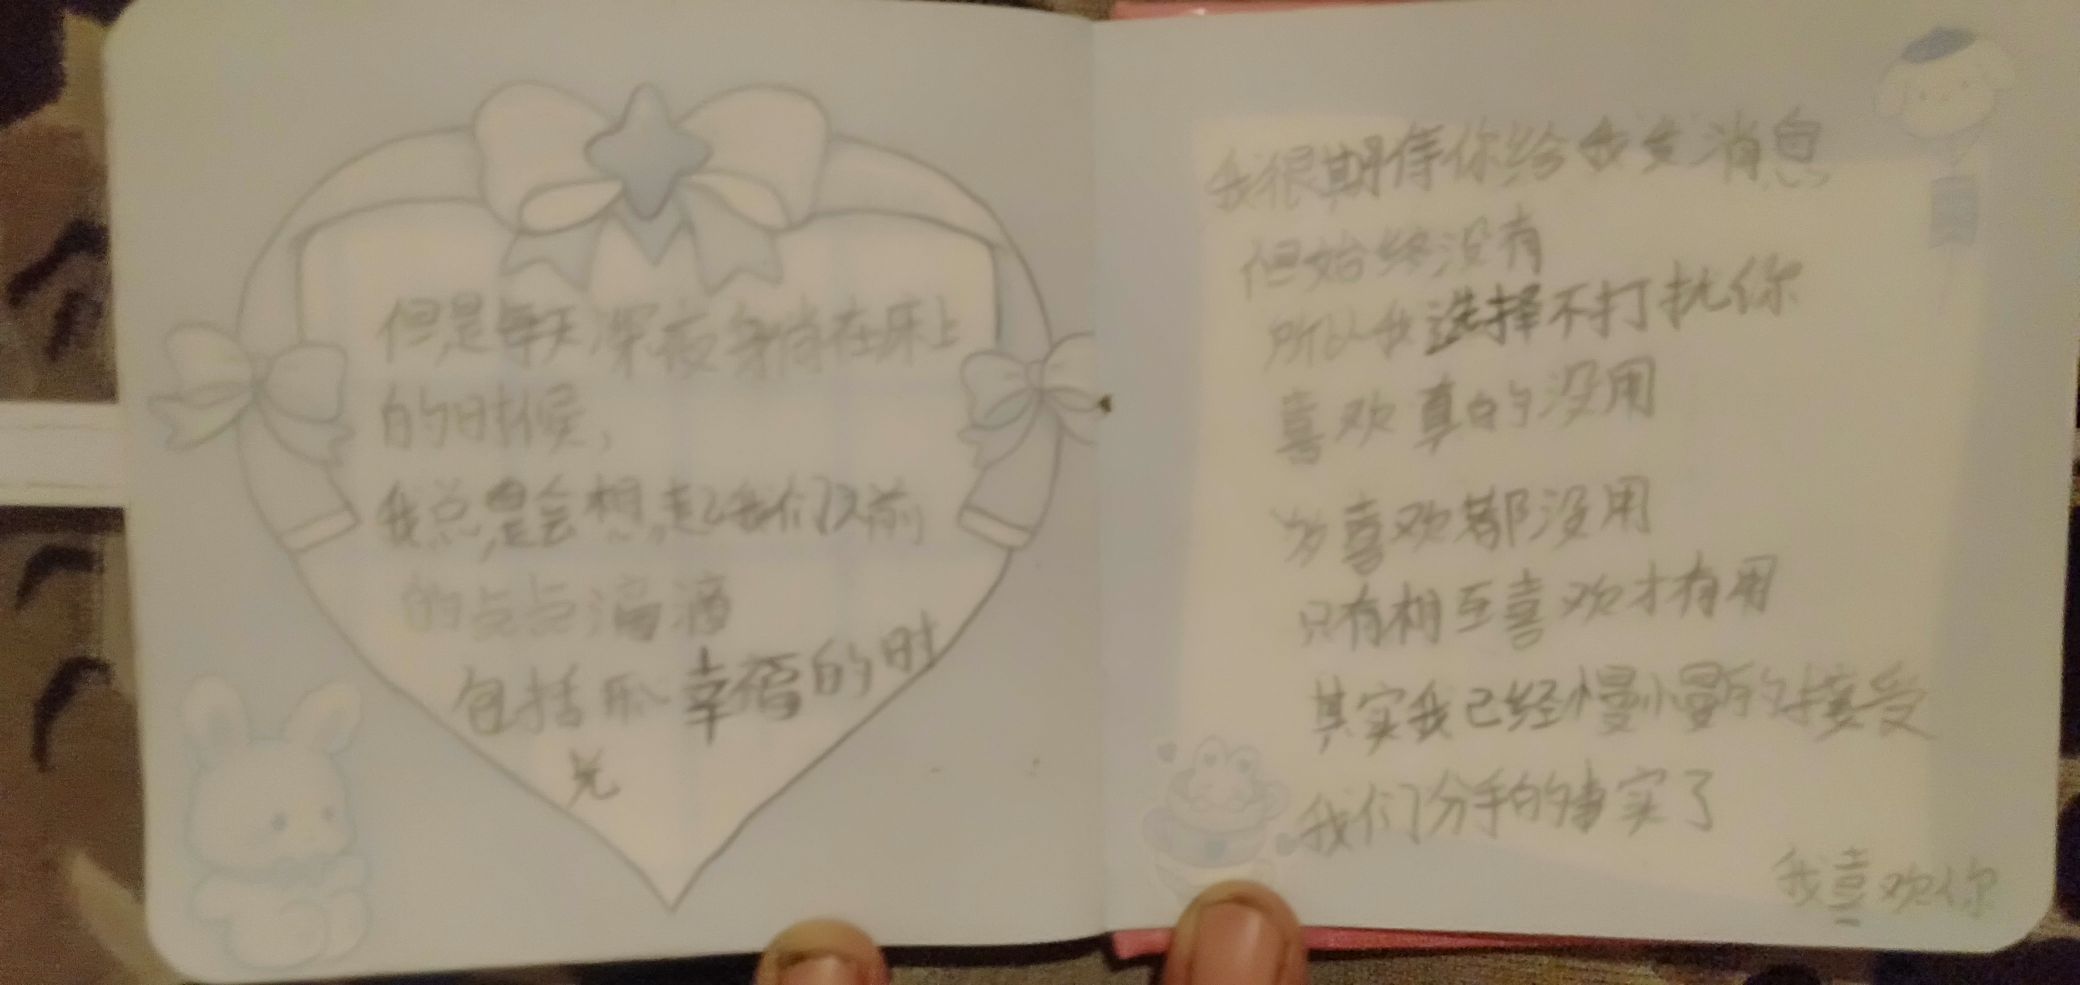 但是每天深夜身躺在床上
的时候,
我总是会想起我们以前
的点点滴滴
包括那幸福的时
光
我很期待你给我发消息
但始终没有
所以我选择不打扰你
喜欢真的没用
多喜欢都没用
只有相互喜欢才有用
其实我已经慢慢的接受
我们分手的事实了
我喜欢你